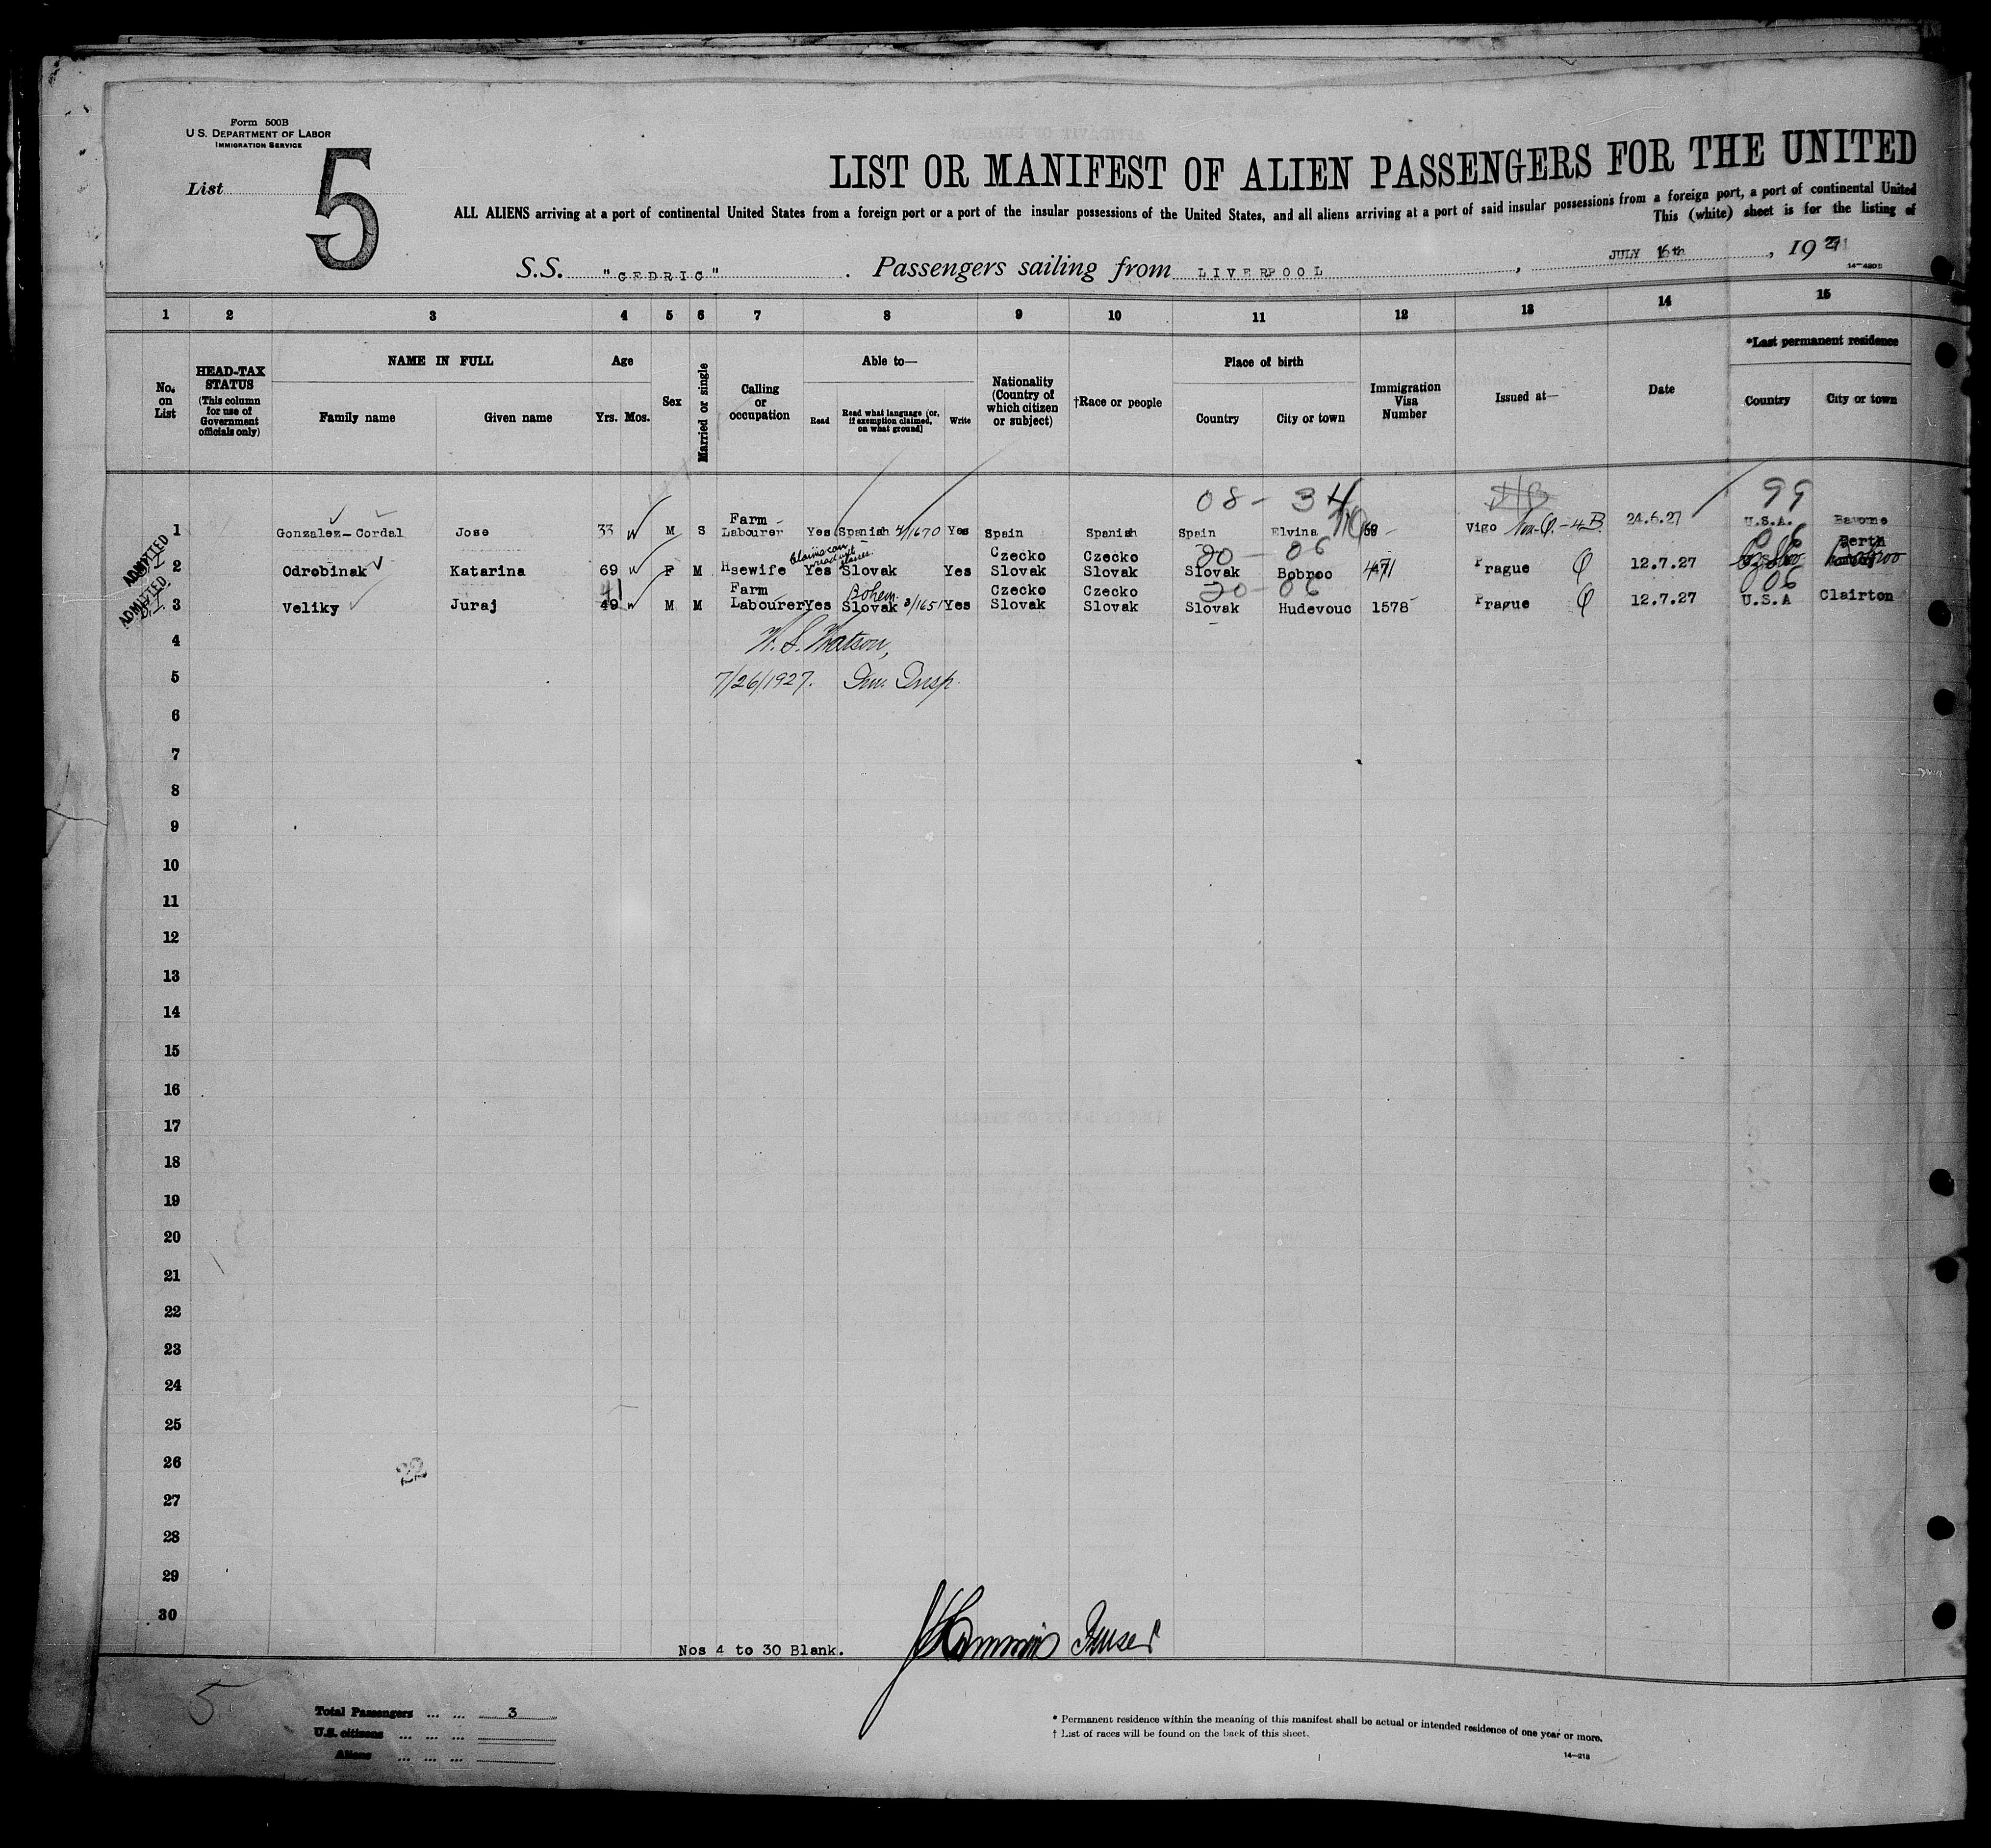 Form 500B
U.S. DEPARTMENT OF LABOR
IMMIGRATION SERVICE
List 5
LIST OR MANIFEST OF ALIEN PASSENGERS FOR THE UNITED
ALL ALIENS arriving at a port of continental United States from a foreign port or a port of the insular possessions of the United States, and all aliens arriving at a port of said insular possessions from a foreign port, a port of continental United
This (white) sheet is for the listing of
S.S. "CEDRIC". Passengers sailing from LIVERPOOL, JULY 16th, 1927
1 2 3 4 5 6 7 8 9 10 11 12 13 14 15
No. on List
HEAD-TAX STATUS
(This column for use of Government officials only)
NAME IN FULL
Family name Given name
Age
Yrs. Mos.
Sex
Married or single
Calling or occupation
Able to—
Read
Read what language [or, if exemption claimed, on what ground]
Write
Nationality (Country of which citizen or subject)
†Race or people
Place of birth
Country City or town
Immigration Visa Number
Issued at—
Date
*Last permanent residence
Country City or town
08 - 34 99
ADMITTED
1 Gonzalez-Cordal Jose 33 M S Farm Labourer Yes Spanish 4/1670 Yes Spain Spanish Spain Elvina 68 Vigo Non-Q.-4B. 24.6.27 U.S.A.
20 - 06
ADMITTED
2 Odrobinak Katarina 69 F M Hsewife Yes Slovak Yes Czecko Slovak Czecko Slovak Slovak Bobroo 4471 Prague Q 12.7.27
20-06 06
3 Veliky Juraj 41 49 M M Farm Labourer Yes Bohem. Slovak 3/1651 Yes Czecko Slovak Czecko Slovak Slovak Hudevouc 1578 Prague Q 12.7.27 U.S.A Clairton
4 W. S. Watson,
5 7/26/1927. Imm. Insp.
6
7
8
9
10
11
12
13
14
15
16
17
18
19
20
21
22
23
24
25
26
22
27
28
29
30
Nos 4 to 30 Blank.
5
Total Passengers ... ... 3
U.S. citizens ... ... ...
Aliens ... ... ...
* Permanent residence within the meaning of this manifest shall be actual or intended residence of one year or more.
† List of races will be found on the back of this sheet.
14-213